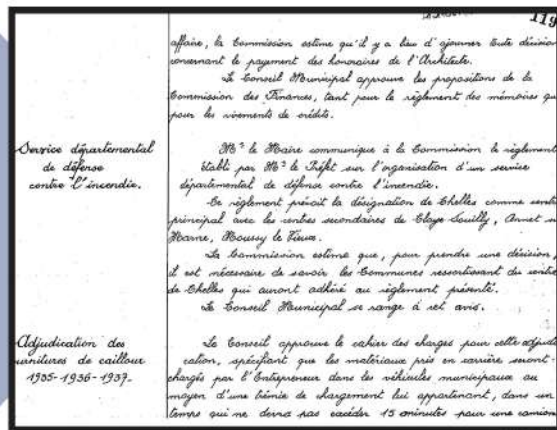 119
affaire, la Commission estime qu'il y a lieu d'ajourner toute décision
concernant le payement des honoraires de l'Architecte.
Le Conseil Municipal approuve les propositions de la
Commission des Finances, tant pour le règlement des mémoires que
pour les virements de crédits.
Service départemental
de défense
contre l'incendie.
Mr le Maire communique à la Commission le règlement
établi par Mr le Préfet sur l'organisation d'un service
départemental de défense contre l'incendie.
Ce règlement prévoit la désignation de Chelles comme centre
principal avec les centres secondaires de Claye Souilly, Annet s
Marne, Moussy le Vieux.
La Commission estime que, pour prendre une décision,
il est nécessaire de savoir les Communes ressortissant du centre
de Chelles qui auront adhéré au règlement présenté.
Le Conseil Municipal se range à cet avis.
Adjudication des
urnitures de cailloux
1935-1936-1937.
Le Conseil approuve le cahier des charges pour cette adjudi
cation, spécifiant que les matériaux pris en carrière seront
chargés par l'Entrepreneur dans les véhicules municipaux au
moyen d'une trémie de chargement lui appartenant, dans un
temps qui ne devra pas excéder 15 minutes pour une camion